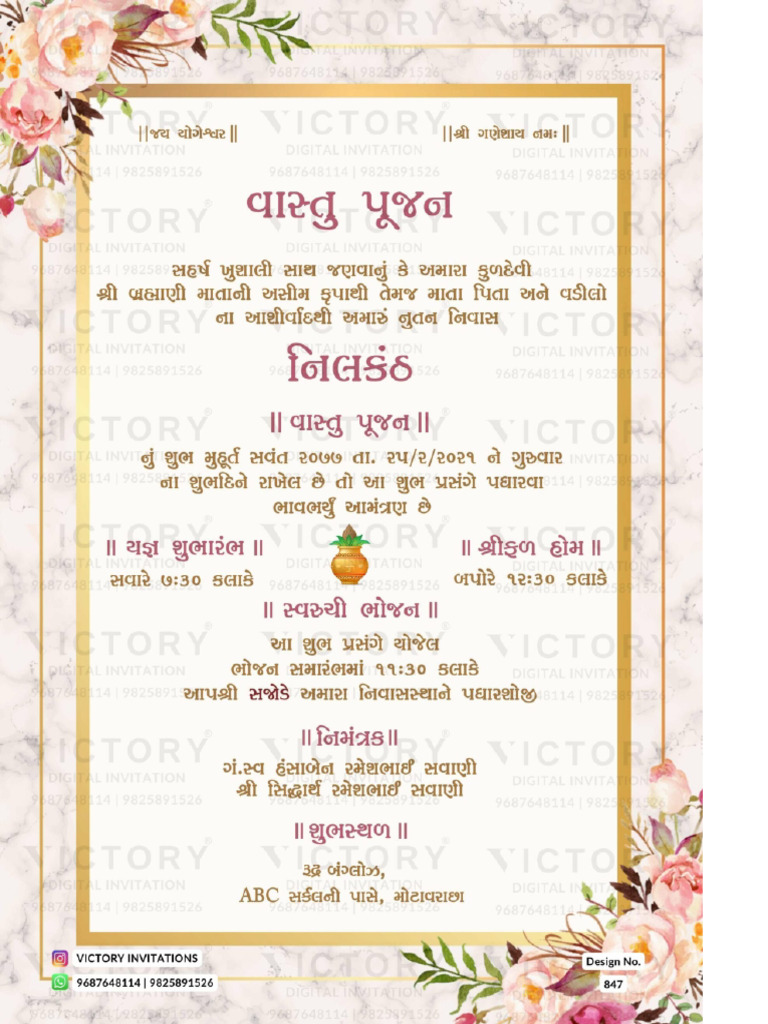 ||જય યોગેશ્વર||
||શ્રી ગણેશાય નમઃ||
વાસ્તુ પૂજન
સહર્ષ ખુશાલી સાથ જણવાનું કે અમારા કુળદેવી
શ્રી બ્રહ્માણી માતાની અસીમ કૃપાથી તેમજ માતા પિતા અને વડીલો
ના આશીર્વાદથી અમારું નુતન નિવાસ
નિલકંઠ
|| વાસ્તુ પૂજન ||
નું શુભ મુહૂર્ત સવંત ૨૦૭૭ તા. ૨૫/૨/૨૦૨૧ ને ગુરુવાર
ના શુભદિને રાખેલ છે તો આ શુભ પ્રસંગે પધારવા
ભાવભર્યું આમંત્રણ છે
|| યજ્ઞ શુભારંભ ||
સવારે ૭:૩૦ કલાકે
|| શ્રીફળ હોમ ||
બપોરે ૧૨:૩૦ કલાકે
|| સ્વરુચી ભોજન ||
આ શુભ પ્રસંગે યોજેલ
ભોજન સમારંભમાં ૧૧:૩૦ કલાકે
આપશ્રી સજોડે અમારા નિવાસસ્થાને પધારશોજી
||નિમંત્રક||
ગં.સ્વ હંસાબેન રમેશભાઈ સવાણી
શ્રી સિદ્ધાર્થ રમેશભાઈ સવાણી
|| શુભસ્થળ ||
રૂદ્ર બંગ્લોઝ,
ABC સર્કલની પાસે, મોટાવરાછા
VICTORY INVITATIONS
9687648114 | 9825891526
Design No.
847
VICTORY
DIGITAL INVITATION
9687648114 | 9825891526